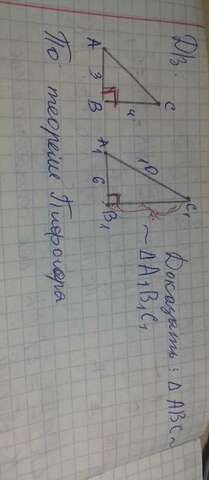 Д/з.
A
3
B
4
C
A₁
6
B₁
10
C₁
Доказать: △ABC ~
~ △A₁B₁C₁
По теореме Пифагора